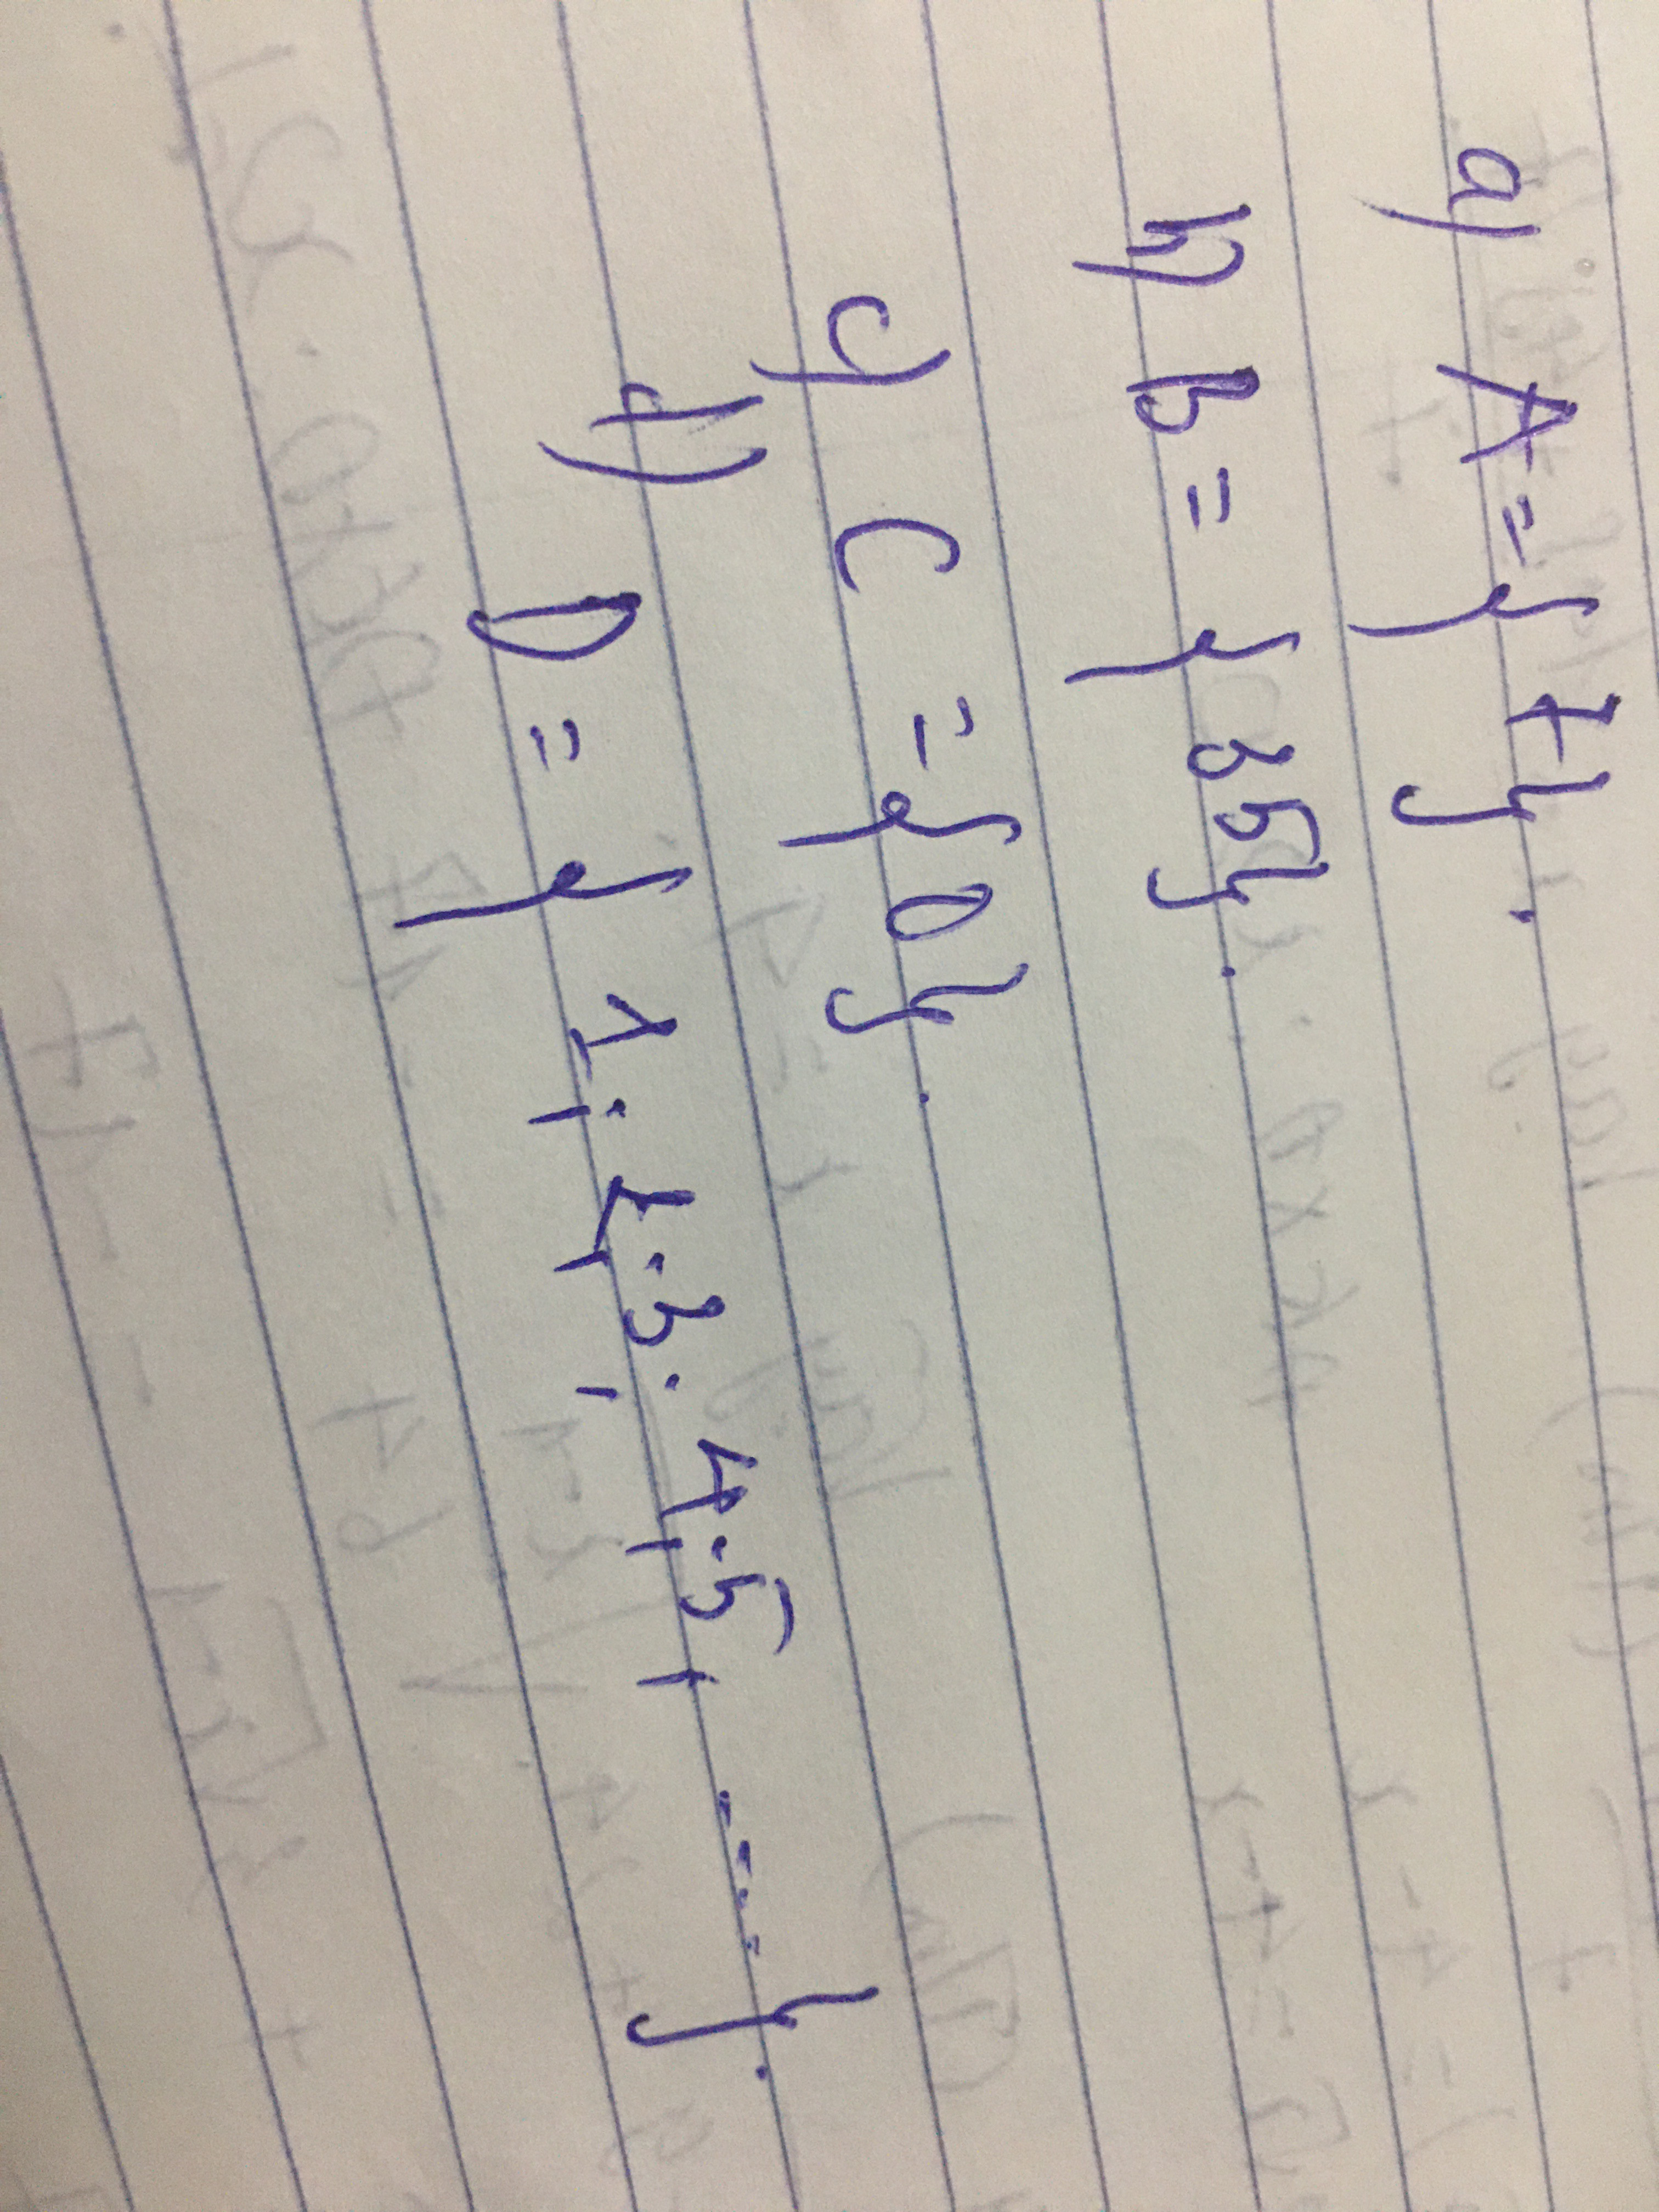 a) A = { 7 }.
b) B = { 35 }.
c) C = { 0 }.
d) D = { 1; 2; 3; 4; 5; ..... }.